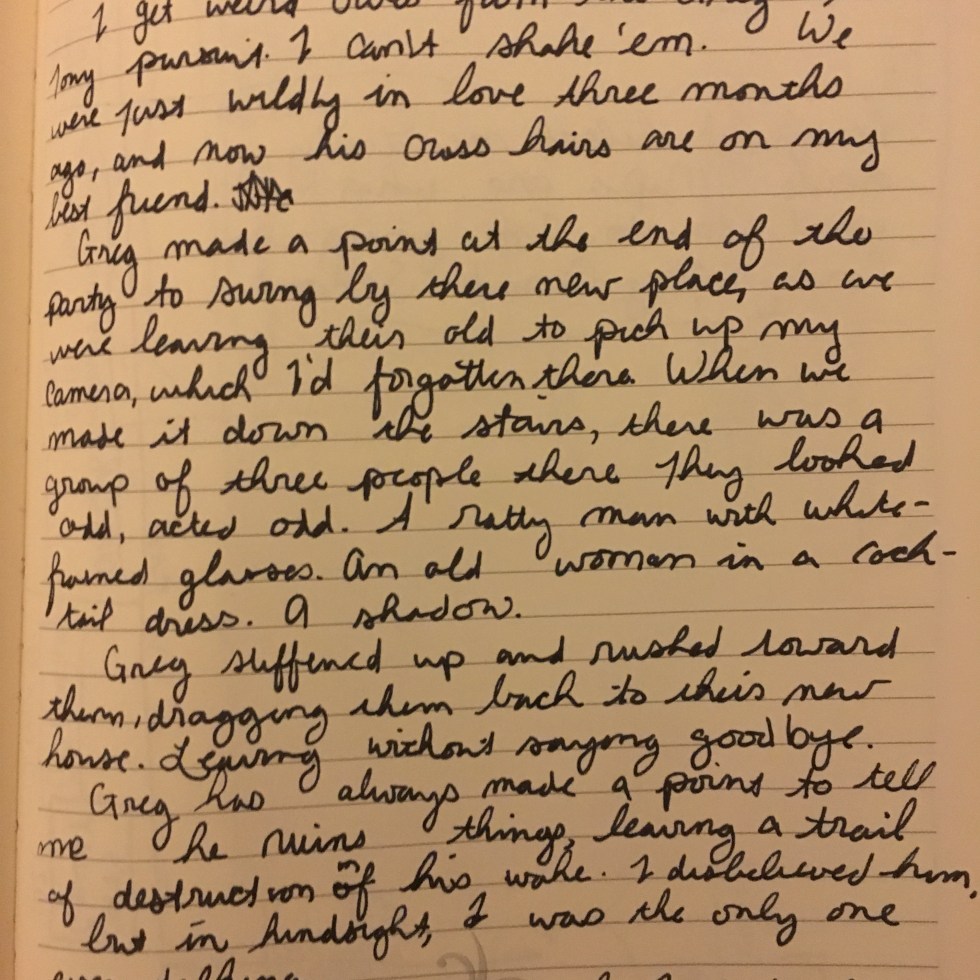 I get weird from
Tony pursuit. I can't shake 'em. We
were just wildly in love three months
ago, and now his cross hairs are on my
best friend.
Greg made a point at the end of the
party to swing by there new place, as we
were leaving their old to pick up my
camera, which I'd forgotten there. When we
made it down the stairs, there was a
group of three people there They looked
odd, acted odd. A ratty man with white-
framed glasses. An old woman in a cock-
tail dress. A shadow.
Greg stiffened up and rushed toward
them, dragging them back to their new
house. Leaving without saying goodbye.
Greg has always made a point to tell
me he ruins things, leaving a trail
of destruction in of his wake. I disbelieved him,
but in hindsight, I was the only one